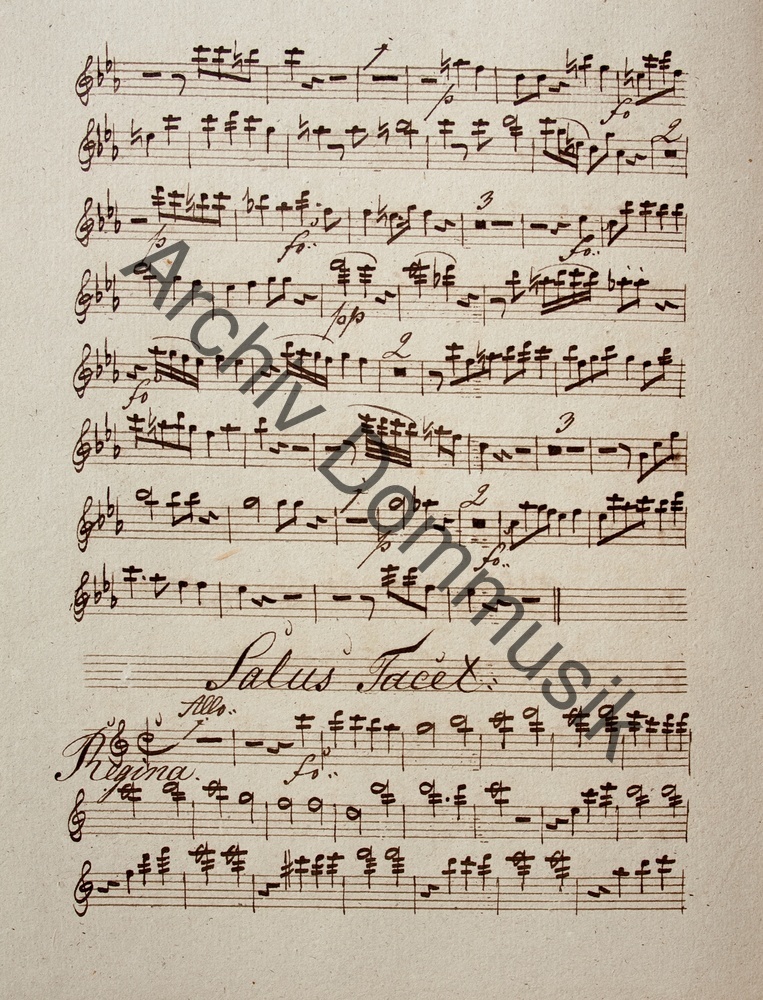 1
p
fo
2
p
fo:
3
fo:
pp
fo
2
3
1
p
2
fo:
Salus Tacet:
Allo:
1
Regina.
fo:
Archiv Dommusik